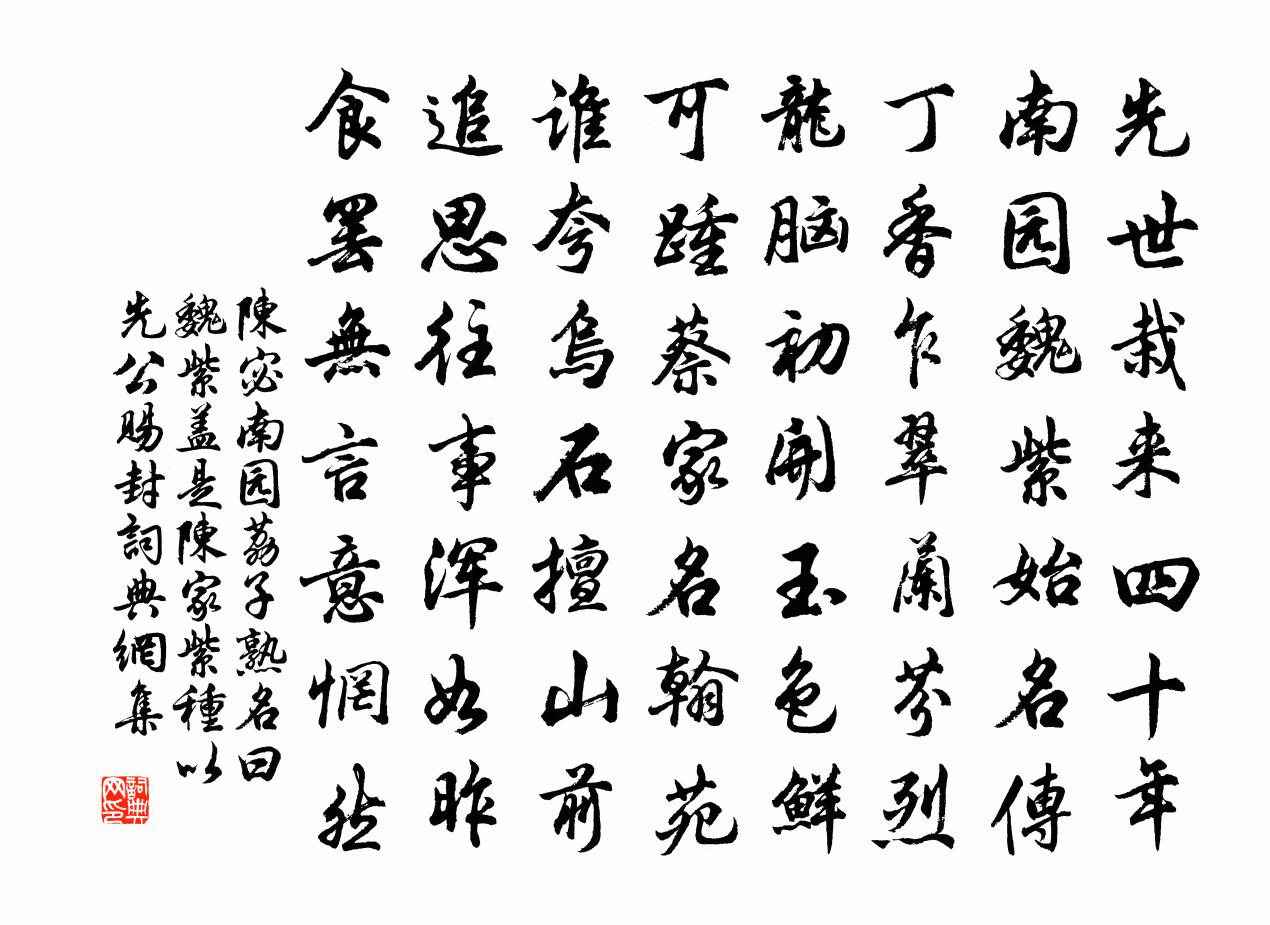 先世栽来四十年
南园魏紫始名傳
丁香乍翠蘭芬烈
龍脑初開玉色鮮
可踵蔡家名翰苑
谁夸烏石擅山前
追思往事浑如昨
食罢無言意惘然
陳宓南园荔子熟名曰
魏紫盖是陳家紫種以
先公赐封詞典網集
詞典
网印